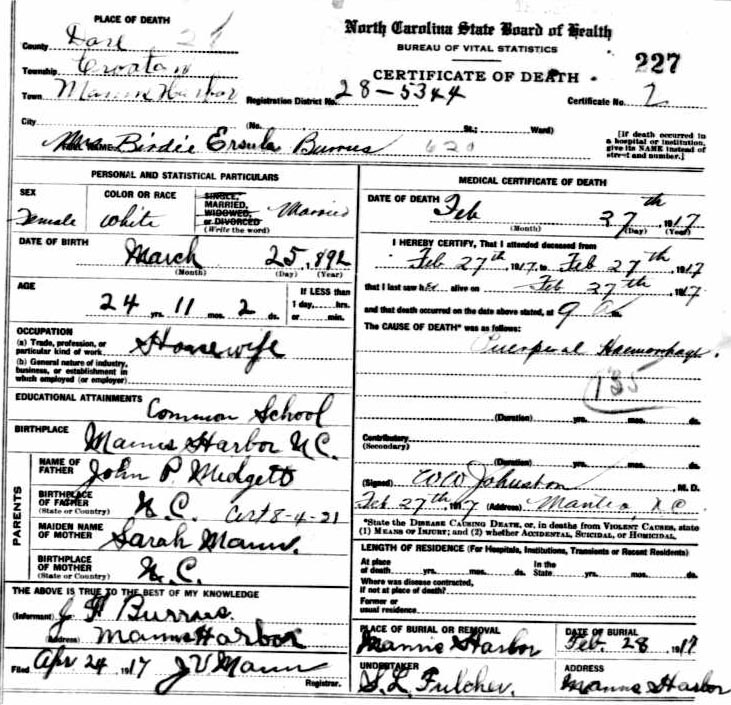 PLACE OF DEATH
County Dare
Township Croatan
Town Manns Harbor
City
North Carolina State Board of Health
BUREAU OF VITAL STATISTICS
CERTIFICATE OF DEATH
227
Registration District No. 28-5344
Certificate No. 2
(No. St.; Ward)
[If death occurred in a hospital or institution, give its NAME instead of street and number.]
Mrs Birdie Ersula Burrus 620
PERSONAL AND STATISTICAL PARTICULARS
SEX
Female
COLOR OR RACE
White
SINGLE,
MARRIED,
WIDOWED,
or DIVORCED
(Write the word)
Married
DATE OF BIRTH
March 25, 892
(Month) (Day) (Year)
AGE
24 yrs. 11 mos. 2 ds.
If LESS than
1 day,....hrs.
or....min.
OCCUPATION
(a) Trade, profession, or
particular kind of work
Housewife
(b) General nature of industry,
business, or establishment in
which employed (or employer)
EDUCATIONAL ATTAINMENTS
Common School
BIRTHPLACE
Manns Harbor N.C.
PARENTS
NAME OF
FATHER
John P. Midgett
BIRTHPLACE
OF FATHER
(State or Country)
N.C. Cert 8-4-21
MAIDEN NAME
OF MOTHER
Sarah Mann.
BIRTHPLACE
OF MOTHER
(State or Country)
N.C.
THE ABOVE IS TRUE TO THE BEST OF MY KNOWLEDGE
(Informant) J H Burrus.
Address) Manns Harbor
Filed Apr 24, 1917 J V Mann
Registrar.
MEDICAL CERTIFICATE OF DEATH
DATE OF DEATH
Feb 27th, 1917
(Month) (Day) (Year)
I HEREBY CERTIFY, That I attended deceased from
Feb 27th, 1917, to Feb 27th, 1917
that I last saw her alive on Feb 27th, 1917
and that death occurred on the date above stated, at 9
The CAUSE OF DEATH* was as follows:
Puerperal Haemorrhage.
135
(Duration) yrs. mos. ds.
Contributory
(Secondary)
(Duration) yrs. mos. ds.
(Signed) W W Johnston M. D.
Feb 27th, 1917 (Address) Manteo, N C
*State the DISEASE CAUSING DEATH, or, in deaths from VIOLENT CAUSES, state
(1) MEANS OF INJURY; and (2) whether ACCIDENTAL, SUICIDAL, or HOMICIDAL.
LENGTH OF RESIDENCE (For Hospitals, Institutions, Transients or Recent Residents)
At place
of death yrs. mos. ds.
In the
State yrs. mos. ds.
Where was disease contracted,
if not at place of death?
Former or
usual residence
PLACE OF BURIAL OR REMOVAL
Manns Harbor
DATE OF BURIAL
Feb. 28, 1917
UNDERTAKER
S. L. Fulcher.
ADDRESS
Manns Harbor